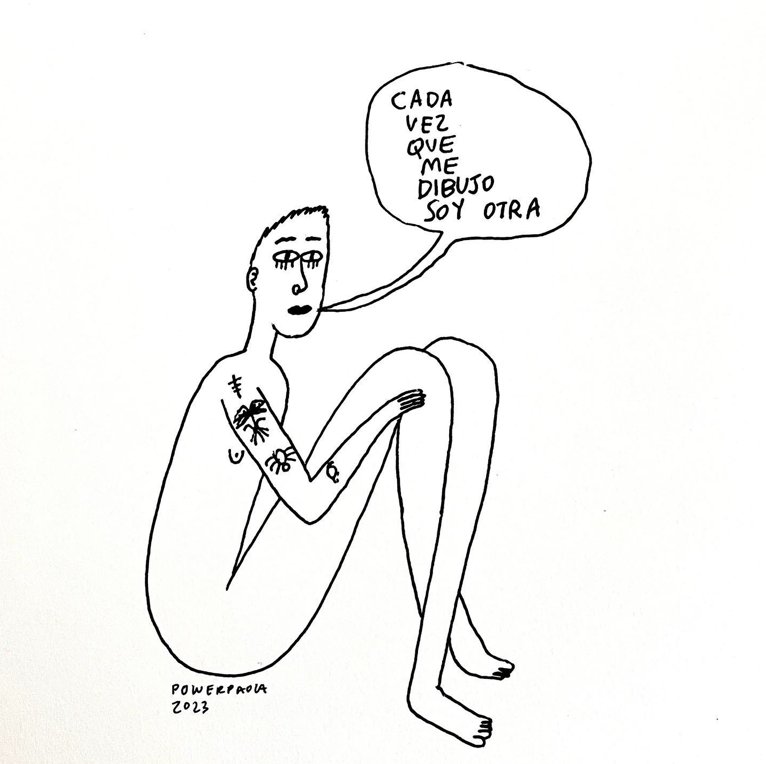 CADA
VEZ
QUE
ME
DIBUJO
SOY OTRA
POWERPAOLA
2023